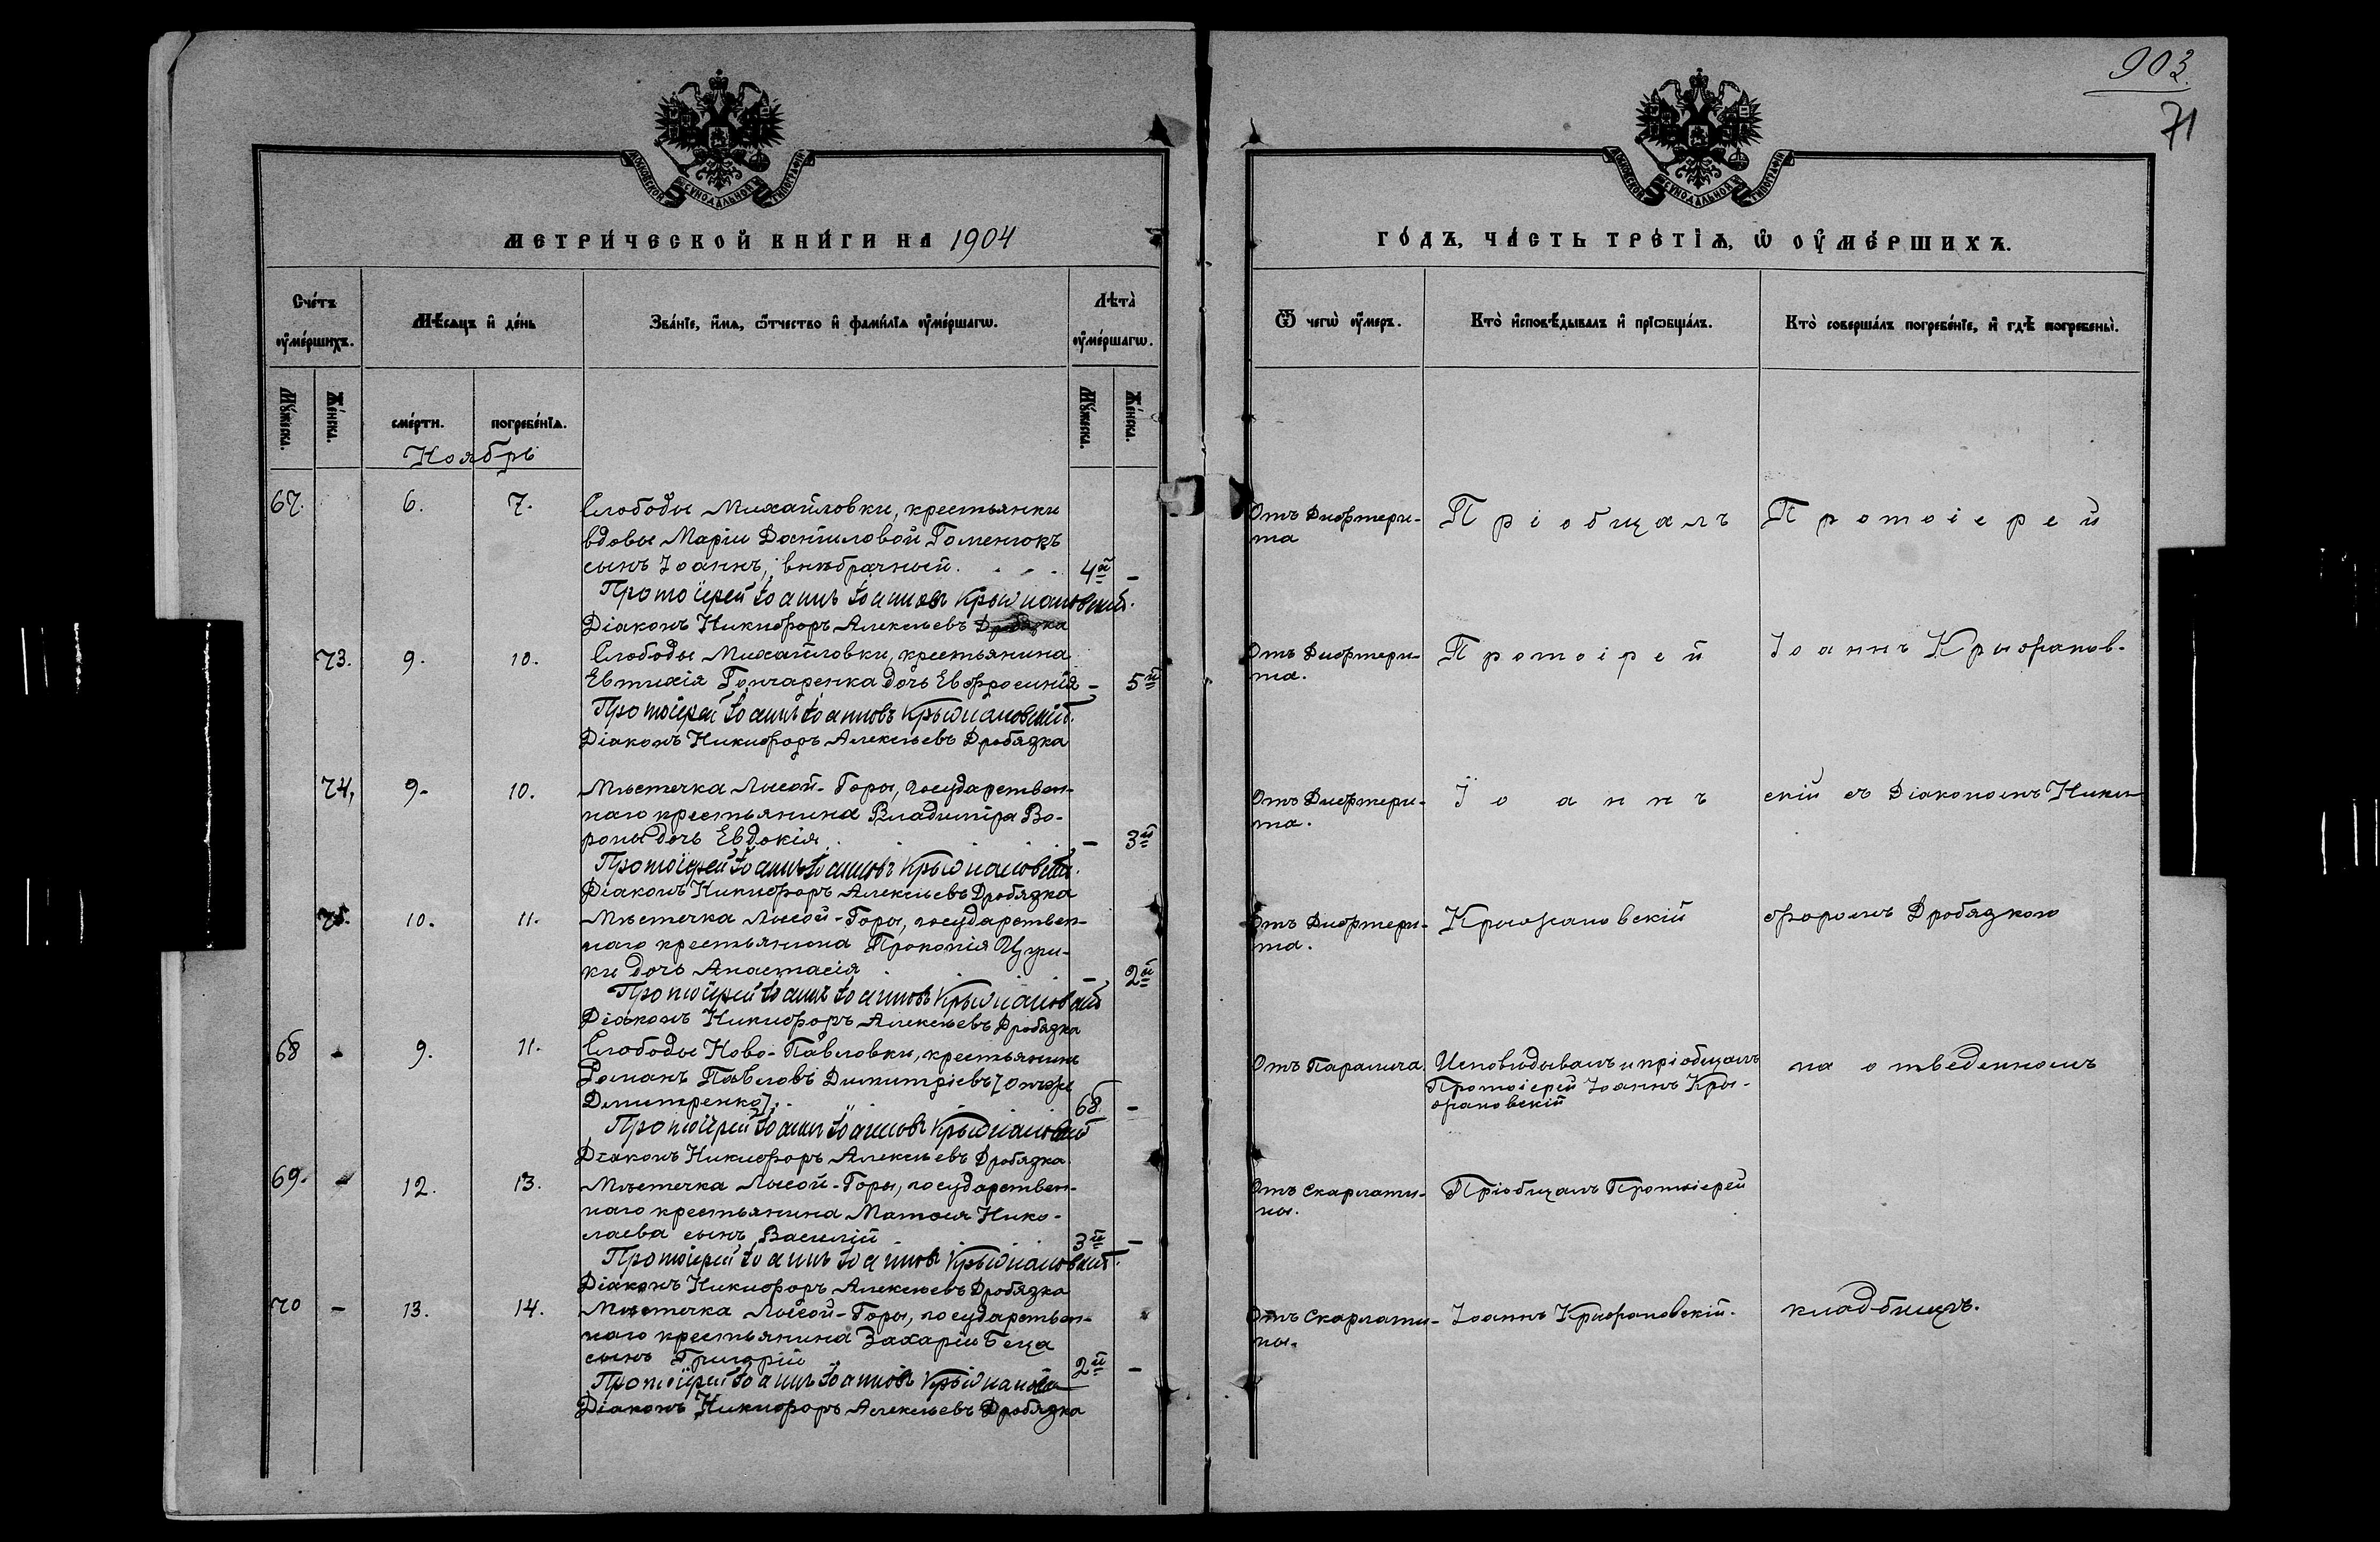 903.
71
МОСКОВСКОЙ СѴНОДАЛЬНОЙ ТИПОГРАФІИ
МОСКОВСКОЙ СѴНОДАЛЬНОЙ ТИПОГРАФІИ
МЕТРИ́ЧЕСКОЙ КНИ́ГИ НА 1904
ГО́ДЪ, ЧА́СТЬ ТРЕ́ТІѦ, Ѡ ОУ҆МЕ́РШИХЪ.
Сче́тъ оу҆ме́ршихъ.
Мѣ́сяцъ и҆ де́нь
Зва́нїе, и҆́мѧ, ѻ҆́тчество и҆ фами́лїѧ оу҆ме́ршагѡ.
Лѣта̀ оу҆ме́ршагѡ.
Ѿ чегѡ̀ оу҆́меръ.
Кто̀ и҆сповѣ́дывалъ и҆ прїѡбща́лъ.
Кто̀ соверша́лъ погребе́нїе, и҆ гдѣ̀ погребены̀.
Му́жеска.
Же́нска.
сме́рти.
погребе́нїѧ.
Му́жеска.
Же́нска.
Ноябрь
67. 6. 7. Слободы Михайловки, крестьянки
вдовы Маріи Даніиловой Гоменюкъ
сынъ Іоаннъ, внѣбрачный. 4й -
Протоіерей Іоаннъ Іоанновъ Крыжановскій.
Діаконъ Никифоръ Алексѣевъ Дробязка
Отъ Дифтери-
та
Пріобщалъ
Протоіерей
73. 9. 10. Слободы Михайловки, крестьянина
Евтихія Гончаренка дочь Евфросинія - 5й
Протоіерей Іоаннъ Іоанновъ Крыжановскій.
Діаконъ Никифоръ Алексѣевъ Дробязка
Отъ Дифтери-
та.
Протоіерей
Іоаннъ Крыжанов-
74, 9. 10. Мѣстечка Лысой-Горы, государствен-
наго крестьянина Владиміра Во-
роны дочь Евдокія - 3й
Протоіерей Іоаннъ Іоанновъ Крыжановскій.
Діаконъ Никифоръ Алексѣевъ Дробязка
Отъ Дифтери-
та.
Іоаннъ
скій съ Діакономъ Ники-
75. 10. 11. Мѣстечка Лысой-Горы, государствен-
наго крестьянина Прокопія
ки дочь Анастасія - 2й
Протоіерей Іоаннъ Іоанновъ Крыжановскій
Діаконъ Никифоръ Алексѣевъ Дробязка
Отъ Дифтери-
та.
Крыжановскій
форомъ Дробязкою
68 - 9. 11. Слободы Ново-Павловки, крестьянинъ
Романъ Павловъ Димитріевъ [онъ же
Дмитренко]. 68 -
Протоіерей Іоаннъ Іоанновъ Крыжановскій
Діаконъ Никифоръ Алексѣевъ Дробязка.
Отъ Паралича
Исповѣдывалъ и пріобщалъ
Протоіерей Іоаннъ Кры-
жановскій
на отведенномъ
69. - 12. 13. Мѣстечка Лысой-Горы, государствен-
наго крестьянина Матѳея Нико-
лаева сынъ Василій 3й -
Протоіерей Іоаннъ Іоанновъ Крыжановскій.
Діаконъ Никифоръ Алексѣевъ Дробязка
Отъ Скарлати-
ны.
Пріобщалъ Протоіерей
70 - 13. 14. Мѣстечка Лысой-Горы, государствен-
наго крестьянина Захаріи Беца
сынъ Григорій 2й -
Протоіерей Іоаннъ Іоанновъ Крыжановскій
Діаконъ Никифоръ Алексѣевъ Дробязка
Отъ Скарлати-
ны.
Іоаннъ Крыжановскій.
кладбищѣ.